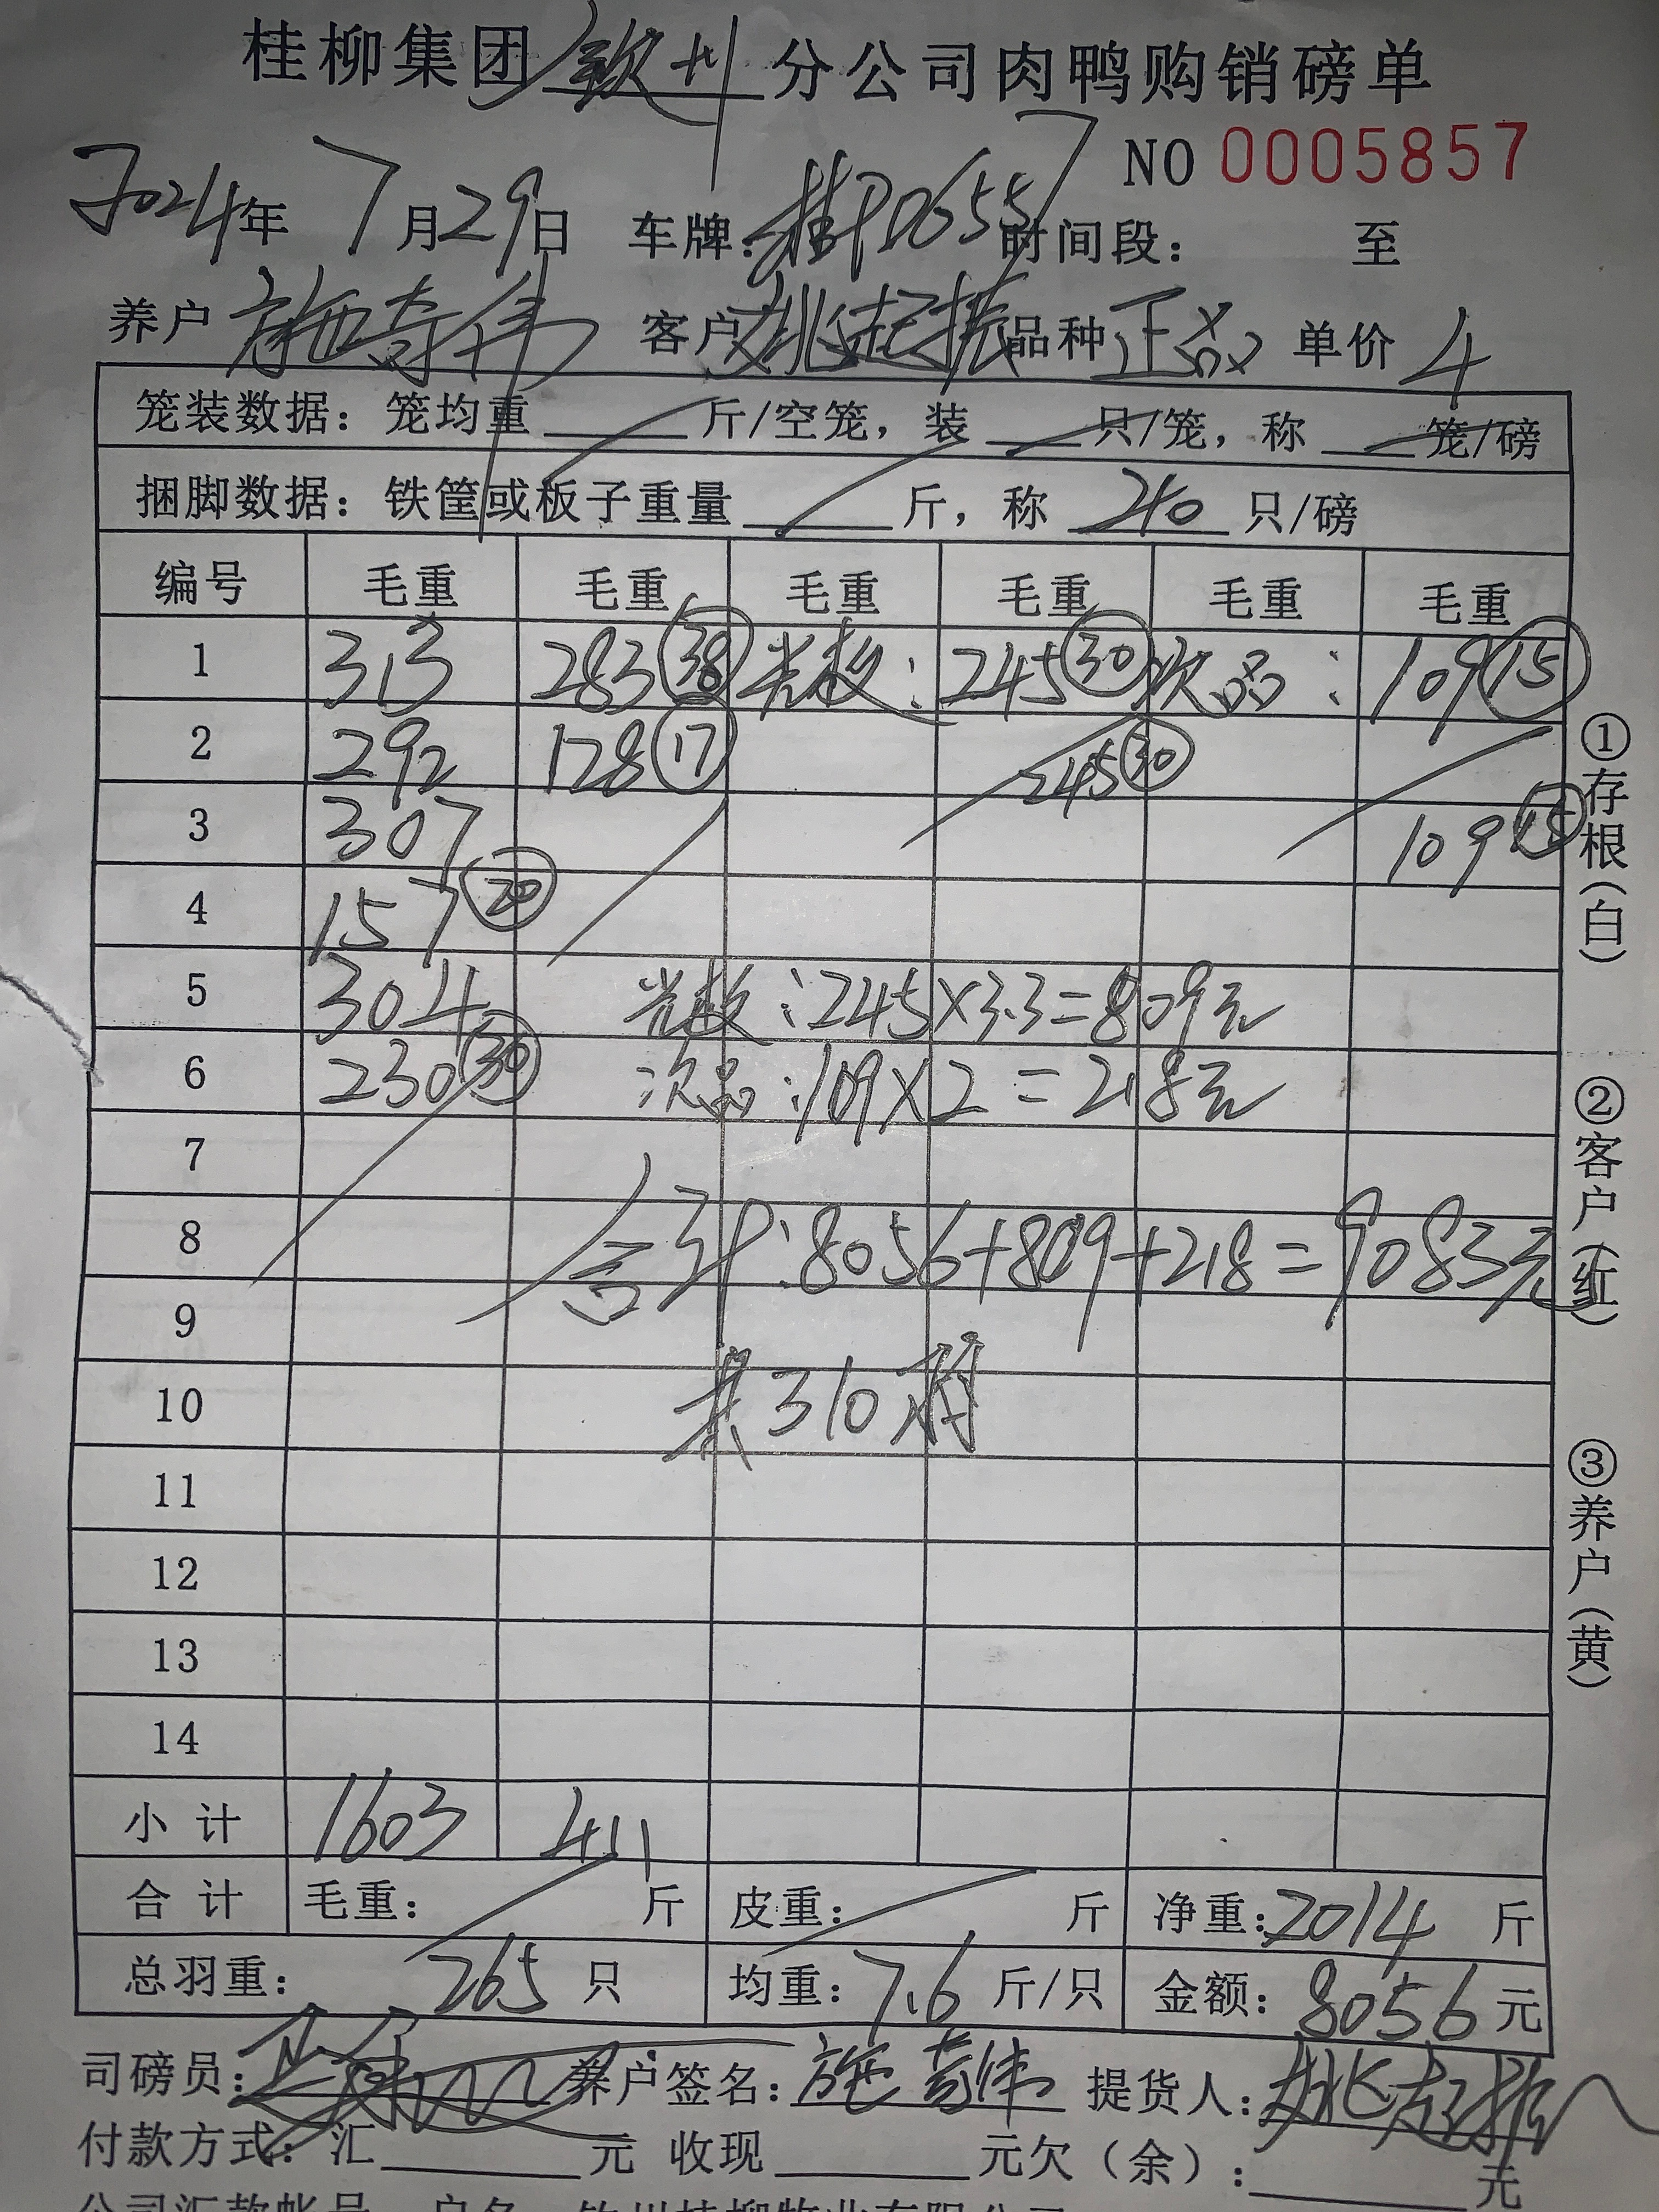 桂柳集团钦州分公司肉鸭购销磅单
NO 0005857
2024年7月29日 车牌：桂PD6557 时间段： 至
养户 施奇伟 客户 姚起振 品种 正品 单价 4
笼装数据：笼均重 斤/空笼，装 只/笼，称 笼/磅
捆脚数据：铁筐或板子重量 斤，称 40 只/磅
编号 毛重 毛重 毛重 毛重 毛重 毛重
1 313 283 38 光板： 245 30 次品： 109 15
2 292 128 17 245 30
3 307 109 15
4 157 20
5 304 光板：245×3.3=809元
6 230 30 次品：109×2=218元
7
8 合计：8056+809+218=9083元
9
10 共310羽
11
12
13
14
小计 1603 411
合计 毛重： 斤 皮重： 斤 净重：2014 斤
总羽重： 265 只 均重：7.6 斤/只 金额：8056 元
司磅员： 养户签名：施奇伟 提货人：姚起振
付款方式：汇 元 收现 元欠（余）： 元
公司汇款帐号 户名 钦州桂柳牧业有限公司
①存根（白）
②客户（红）
③养户（黄）